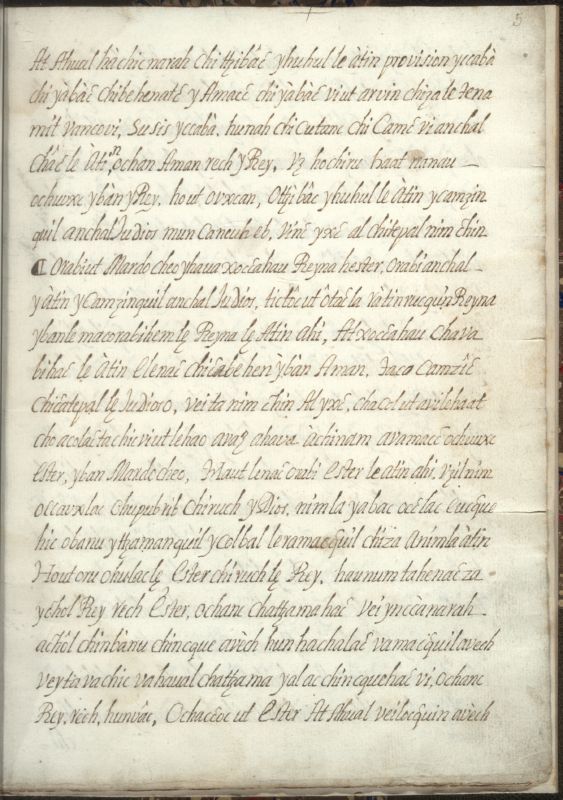 5
At Ahual hà chic narah chi tzibâc yhuhul le àtin provision yccabà
chi yàbàc chibehenatc y Amacc chi yàbàc viut arvin chiza le tena
mit vancovi, Susis yccabà. hunah chi Cutanc chi Camc vi anchal
Chàc le Àtin, ochan Aman rech y Rey. Vz ho chiru haat nanau
ochuuxc ybàn y Rey. hout orxcan, Otzibâc yhuhul le Àtin y camzin
quil anchal Judios mun Cancuh eb, vinc yxc al chicepal nim chin
Orabiut Mardocheo yhaua xoccahau Reyna hester, orabi anchal
y àtin y Camzinquil anchal Judios, tictoc ut ôtac la và tin rucquìn Reyna
ybanle mac orabihem le Reyna le Atin ahi, At xoccahau chava
bihac le Àtin lenac chicabehen ybàn Aman, Camzîc
chicatepal le Judios, vei ta nim chin Al yxc, chacol ut avilehaat
cho acolac ta chic viut lehao avaz ahava àchinam aramacc ochuuxc
Ester, yban Mardocheo, Maut lenac orabi Ester le atin ahi,
occauxlac chupubrib chiruch y Dios, nimla yabac ocelac cucque
hic obanu ytzamanquil ycolbal leramacquil chiza Animla àtin
Hout oru ohulac le Ester chiruch le Rey, haunum tahenac za
ychol Rey rech Ester, ochanc chattzamahac vei ynccànarah
achôl chinbànu chincque avèch hun hachalac vamacquil avech
vey ta vachic va haual chattzama yal ac chincquehac vi, ochanc
Rey, rech, hunvâc, Ochacoc ut Ester At Ahual vei locquin avèch